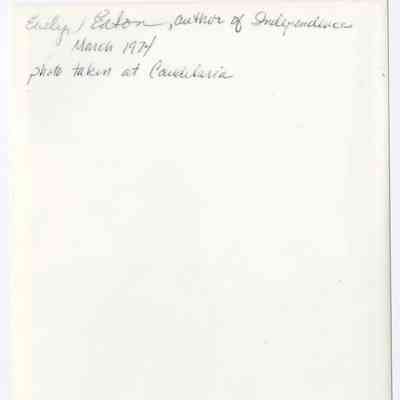 Evelyn Eaton, author of Independence
March 1974
photo taken at Candelaria